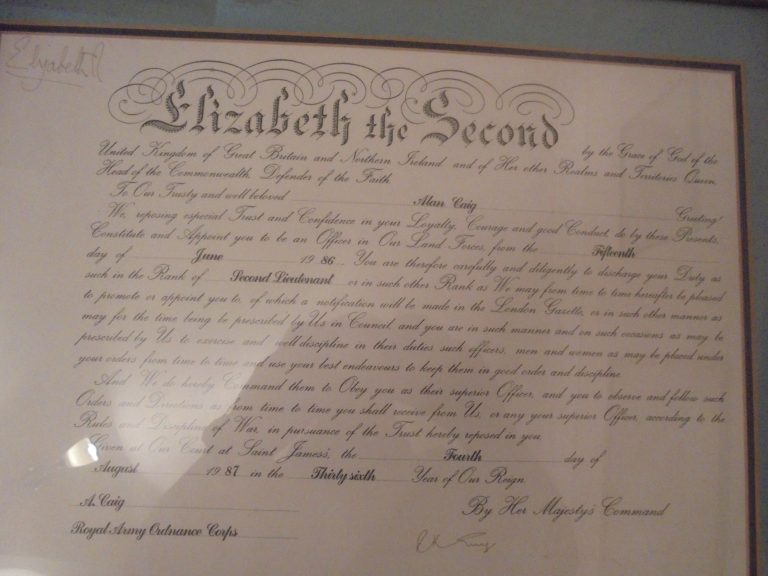 Elizabeth R
Elizabeth the Second
by the Grace of God of the
United Kingdom of Great Britain and Northern Ireland and of Her other Realms and Territories Queen,
Head of the Commonwealth, Defender of the Faith.
To Our Trusty and well beloved Alan Caig Greeting!
We, reposing especial Trust and Confidence in your Loyalty, Courage and good Conduct, do by these Presents,
Constitute and Appoint you to be an Officer in Our Land Forces, from the Fifteenth
day of June 1986. You are therefore carefully and diligently to discharge your Duty as
such in the Rank of Second Lieutenant or in such other Rank as We may from time to time hereafter be pleased
to promote or appoint you to, of which a notification will be made in the London Gazette, or in such other manner as
may for the time being be prescribed by Us in Council, and you are in such manner and on such occasions as may be
prescribed by Us to exercise and well discipline in their duties such officers, men and women as may be placed under
your orders from time to time and use your best endeavours to keep them in good order and discipline.
And We do hereby Command them to Obey you as their superior Officer, and you to observe and follow such
Orders and Directions as from time to time you shall receive from Us, or any your superior Officer, according to the
Rules and Discipline of War, in pursuance of the Trust hereby reposed in you.
Given at Our Court at Saint James's, the Fourth day of
August 1987 in the Thirty sixth Year of Our Reign
By Her Majesty's Command
A. Caig
Royal Army Ordnance Corps